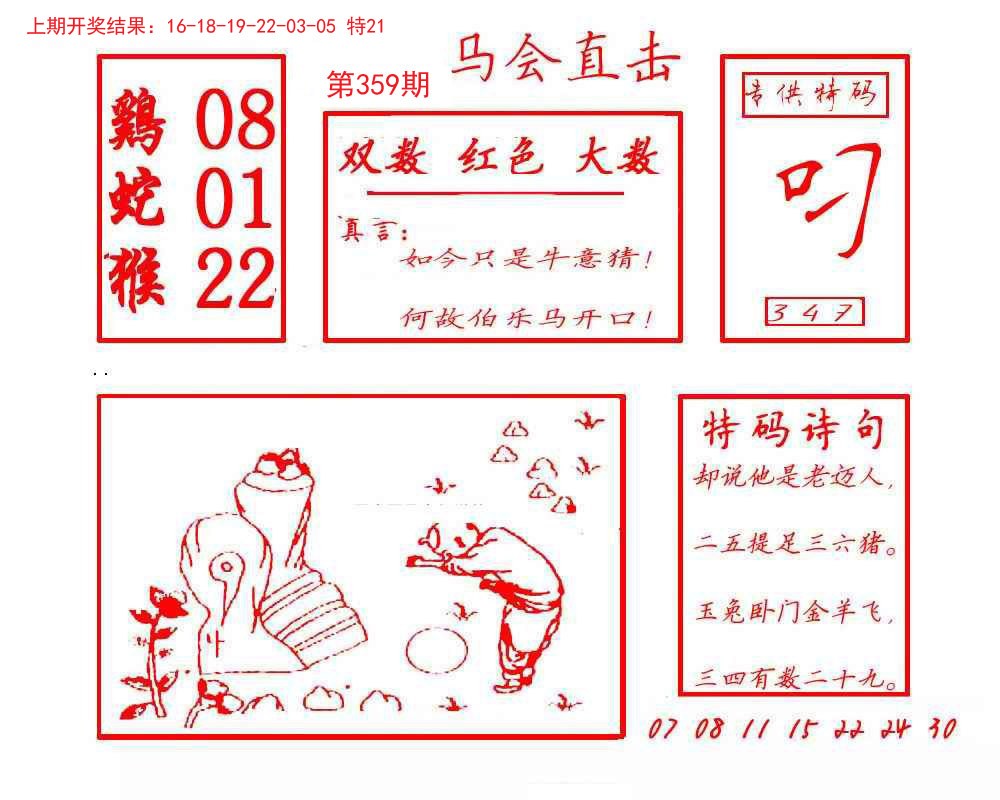 上期开奖结果：16-18-19-22-03-05 特21
马会直击
第359期
鷄 08
蛇 01
猴 22
双数 红色 大数
真言：
如今只是牛意猜！
何故伯乐马开口！
专供特码
叼
3 4 7
特码诗句
却说他是老迈人，
二五提足三六猪。
玉兔卧门金羊飞，
三四有数二十九。
07 08 11 15 22 24 30